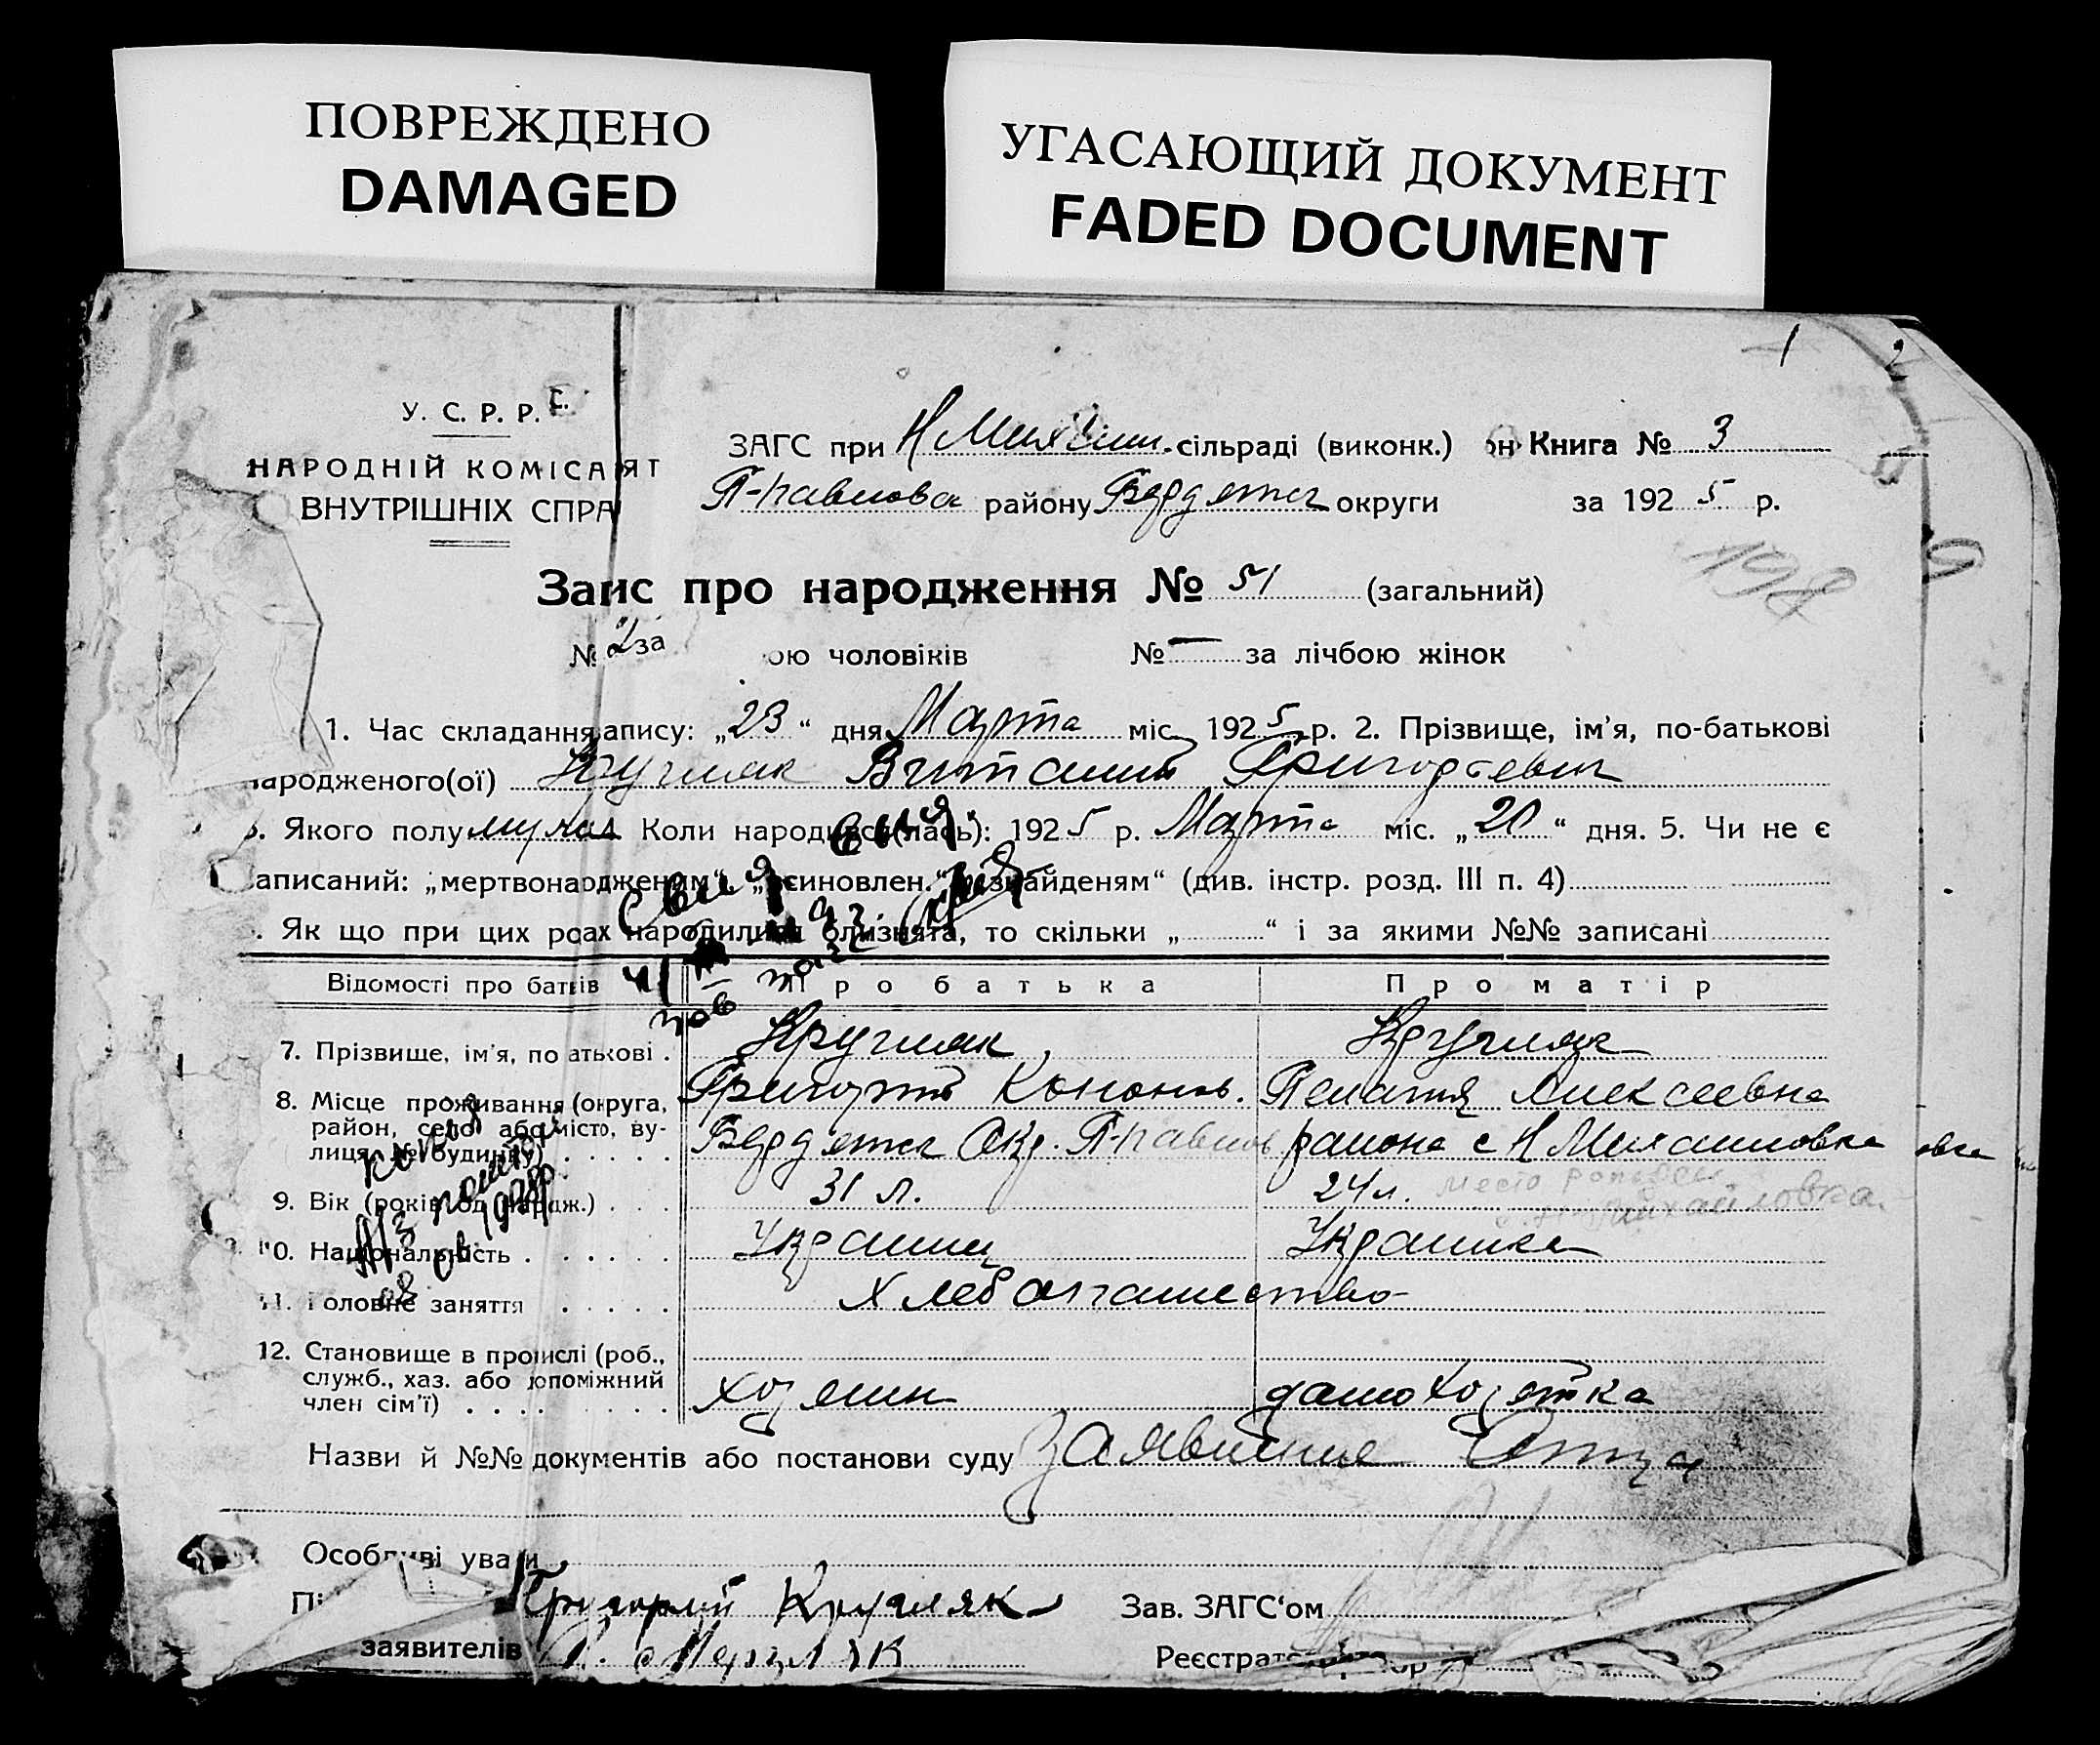 ПОВРЕЖДЕНО
DAMAGED
УГАСАЮЩИЙ ДОКУМЕНТ
FADED DOCUMENT
1
2
У. С. Р. Р.
НАРОДНІЙ КОМІСА ЯТ
ВНУТРІШНІХ СПРА
ЗАГС при Н Михайл. сільраді (виконк.) Книга № 3
П-павловск району Бердянск округи за 1925 р.
198
Заис про народження № 51 (загальний)
№ 21 за ою чоловіків № — за лічбою жінок
1. Час складання апису: „23“ дня Марта міс. 1925 р. 2. Прізвище, ім'я, по-батькові
народженого(ої) Кругляк Виталий Григорьевич
. Якого полу муж 4. Коли народився(лась): 1925 р. Марта міс. „20“ дня. 5. Чи не є
аписаний: „мертвонародженим“, „усиновлен.“, „знайденям“ (див. інстр. розд. III п. 4)
. Як що при цих роах народилися близнята, то скільки „ “ і за якими №№ записані
Відомості про батьків Про батька Про матір
7. Прізвище, ім'я, по атькові . Кругляк, Кругляк
Григорий Кононов. Пелагия Алексеевна
8. Місце проживання (округа, район, село або місто, вулиця, № будинку) Бердянск Окр. П-павлов района с Н Михайловка
9. Вік (років од народж.) 31 л. 24 л. место рожден
с. Н-Михайловка.
10. Національність Украинец Украинка
11. Головне заняття Хлебопашество
12. Становище в промислі (роб., служб., хаз. або допоміжний член сім'ї) хозяин домохозяйка
Назви й №№ документів або постанови суду Заявление Отца
Особливі уваги
Григорий Кругляк Зав. ЗАГС'ом
заявителів
Реєстрат